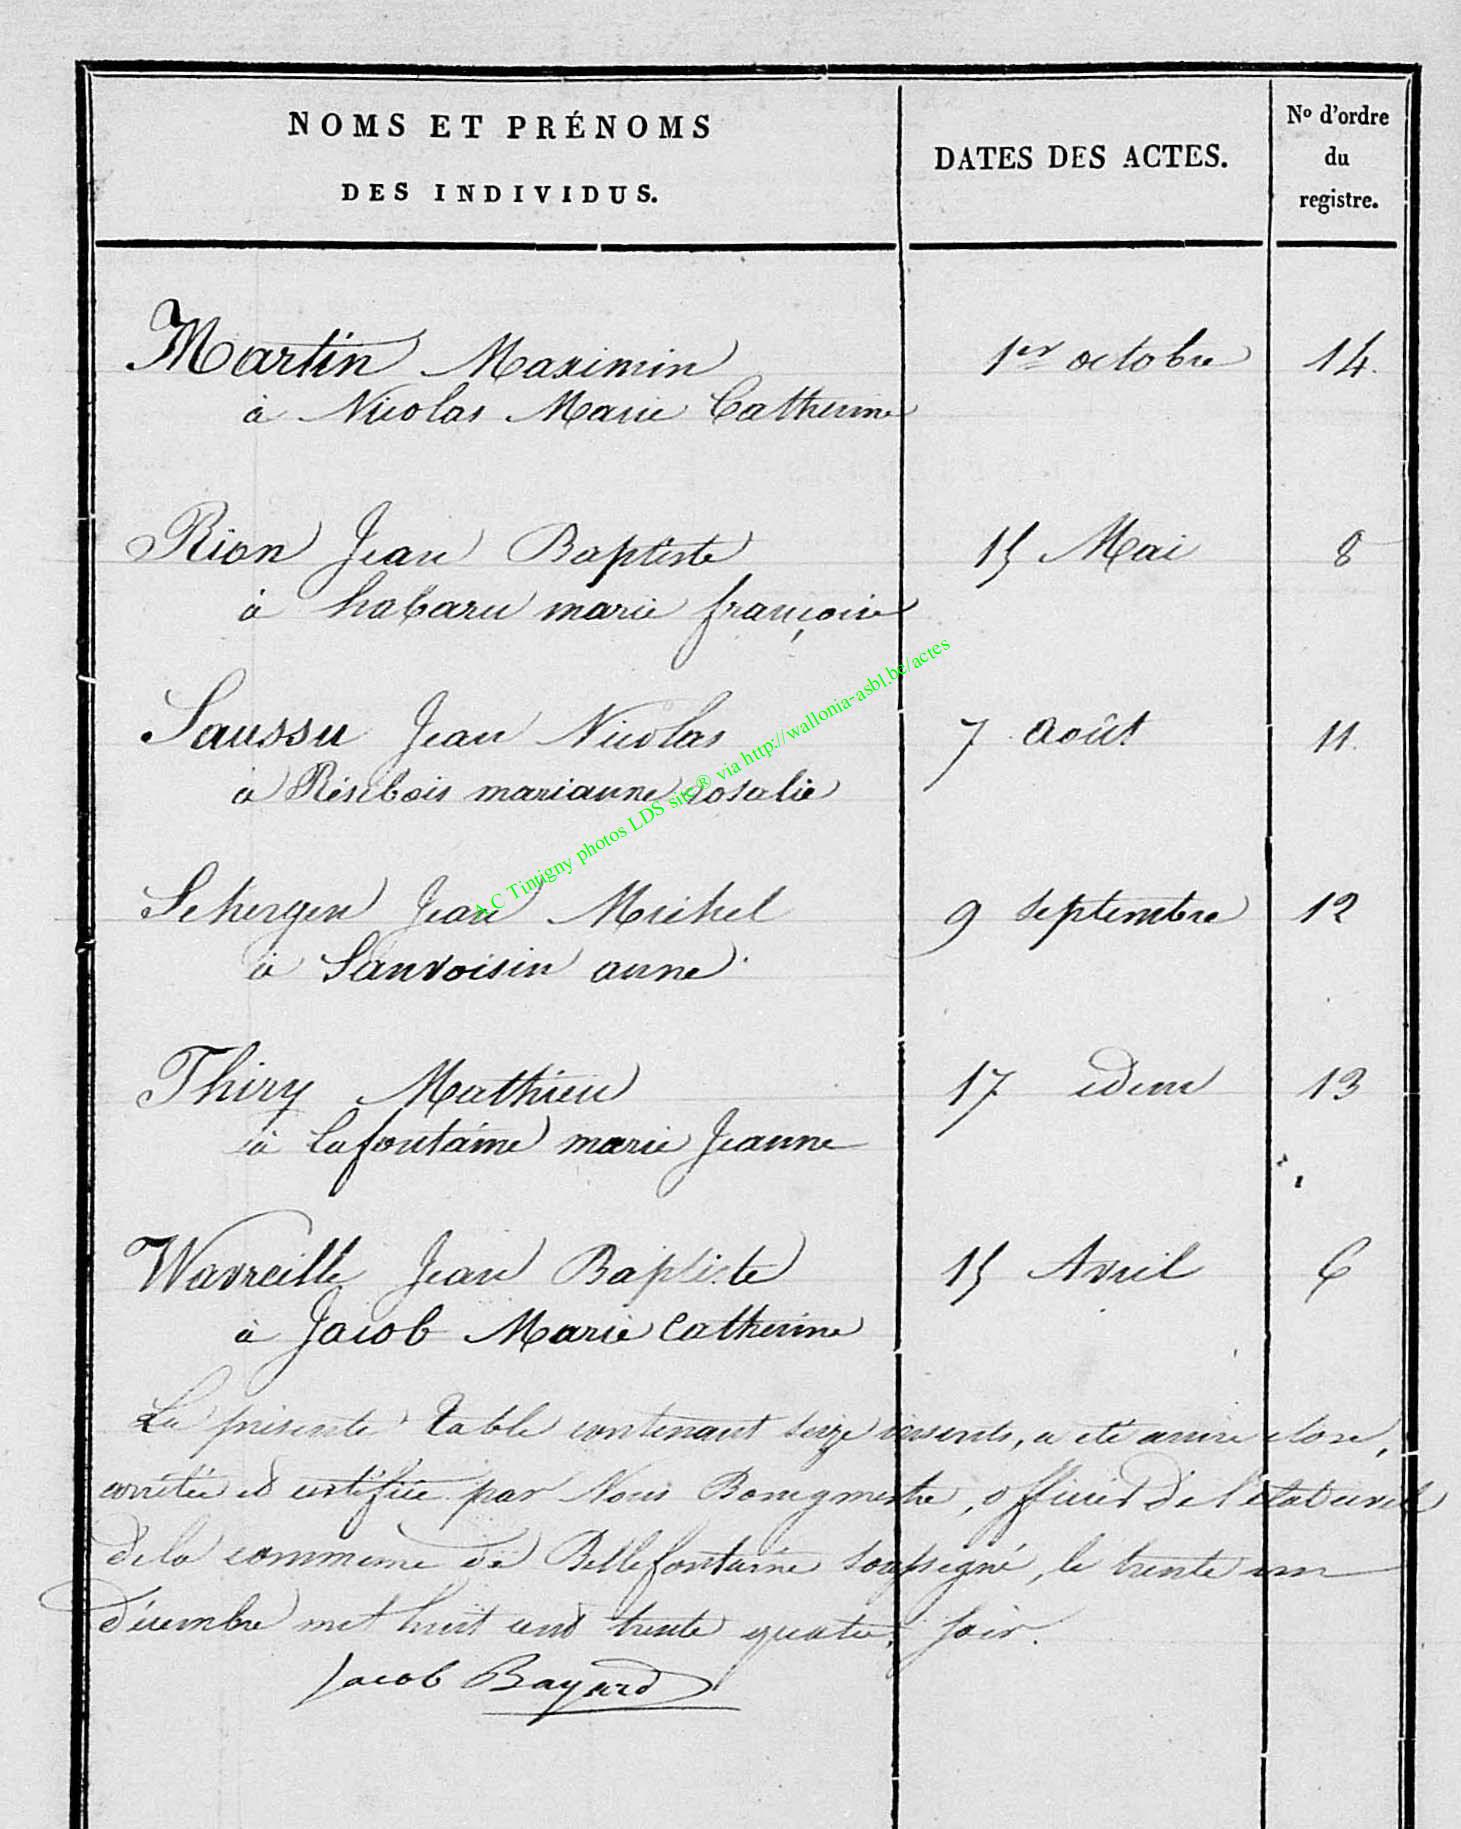 NOMS ET PRÉNOMS
DES INDIVIDUS.
DATES DES ACTES.
No d'ordre
du
registre.
Martin Maximin 1er octobre 14.
à Nicolas Marie Catherine
Rion Jean Baptiste 15 Mai 8
à habaru marie françoise
Saussu Jean Nicolas 7 Août 11
à Résibois marianne rosalie
Schergen Jean Michel 9 septembre 12
à Sanvoisin anne
Thiry Mathieu 17 idem 13
à lafontaine marie Jeanne
Wavreille Jean Baptiste 15 Avril 6
à Jacob Marie Catherine
La présente table contenant seize inserits, a été close,
arrêtée et certifiée par Nous Bourgmestre, officier de l'état civil
de la commune de Bellefontaine soussigné, le trente un
décembre mil huit cent trente quatre, soir.
Jacob Bayard
A.C Tintigny photos LDS site® via http://wallonia-asbl.be/actes